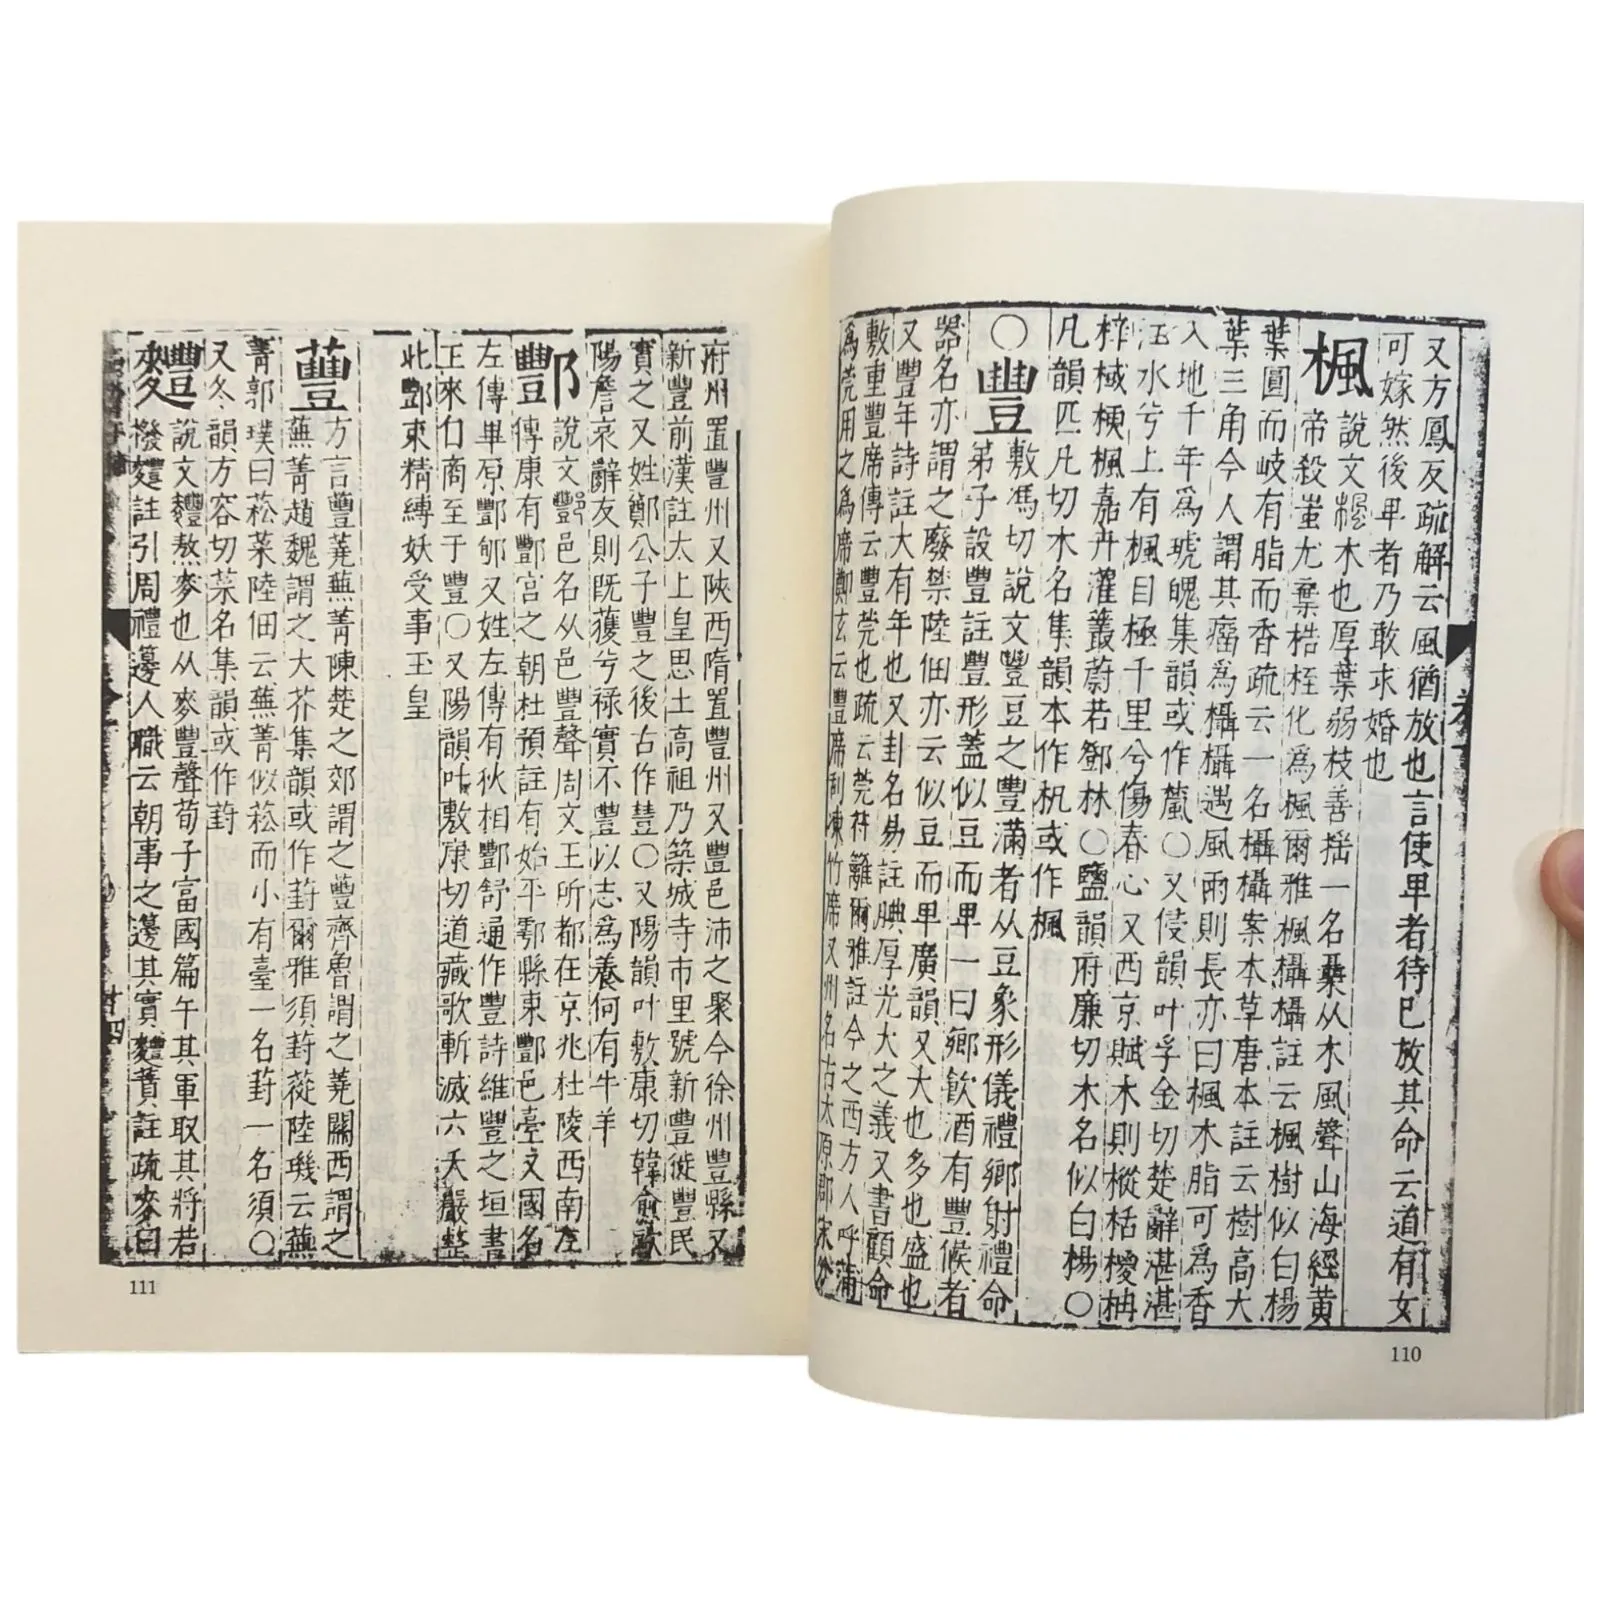 又方鳳友疏解云風猶放也言使卑者待已放其命云道有女
可嫁然後卑者乃敢求婚也
楓
說文楓木也厚葉弱枝善揺一名㯿从木風聲山海經黄
帝殺蚩尤棄桎梏化為楓爾雅楓欇欇註云楓樹似白楊
葉圓而岐有脂而香疏云一名欇欇案本草唐本註云樹高大
葉三角今人謂其瘤為欇欇遇風雨則長亦曰楓木脂可為香
入地千年為琥魄集韻或作檒〇又侵韻叶孚金切楚辭湛湛
江水兮上有楓目極千里兮傷春心又西京賦木則樅栝椶柟
梓棫楩楓嘉卉灌叢蔚若鄧林〇鹽韻府廉切木名似白楊〇
凡韻匹凡切木名集韻本作杋或作楓
〇
豐
敷馮切說文豐豆之豐滿者从豆象形儀禮鄉射禮命
弟子設豐註豐形蓋似豆而卑一曰鄉飲酒有豐候者
噐名亦謂之廢禁陸佃亦云似豆而卑廣韻又大也多也盛也
又豐年詩註大有年也又卦名易註腆厚光大之義又書顧命
敷重豐席傳云豐莞也疏云莞苻蘺爾雅註今之西方人呼蒲
為莞用之為席鄭玄云豐席刮凍竹席又州名古太原郡
110
府州置豐州又陝西隋置豐州又豐邑沛之聚今徐州豐縣又
新豐前漢註太上皇思土高祖乃築城寺市里號新豐徙豐民
實之又姓鄭公子豐之後古作豐〇又陽韻叶敷康切韓愈歐
陽詹哀辭友則既獲兮祿實不豐以志為養何有牛羊
酆
說文酆邑名从邑豐聲周文王所都在京兆杜陵西南左
傳康有酆宮之朝杜預註有始平鄠縣東酆邑臺文國名
左傳畢原酆郇又姓左傳有狄相酆舒通作豐詩維豐之垣書
王來自商至于豐〇又陽韻叶敷康切道藏歌斬滅六天嚴整
北酆束精縛妖受事玉皇
蘴
方言蘴蕘蕪菁陳楚之郊謂之蘴齊魯謂之蕘關西謂之
蕪菁趙魏謂之大芥集韻或作葑爾雅須葑蓯陸璣云蕪
菁郭璞曰菘菜陸佃云蕪菁似菘而小有臺一名葑一名須〇
又冬韻方容切菜名集韻或作葑
麷
說文麷熬麥也从麥豐聲荀子富國篇午其軍取其將若
撥麷註引周禮籩人職云朝事之籩其實麷蕡註疏麥曰
廿四
111